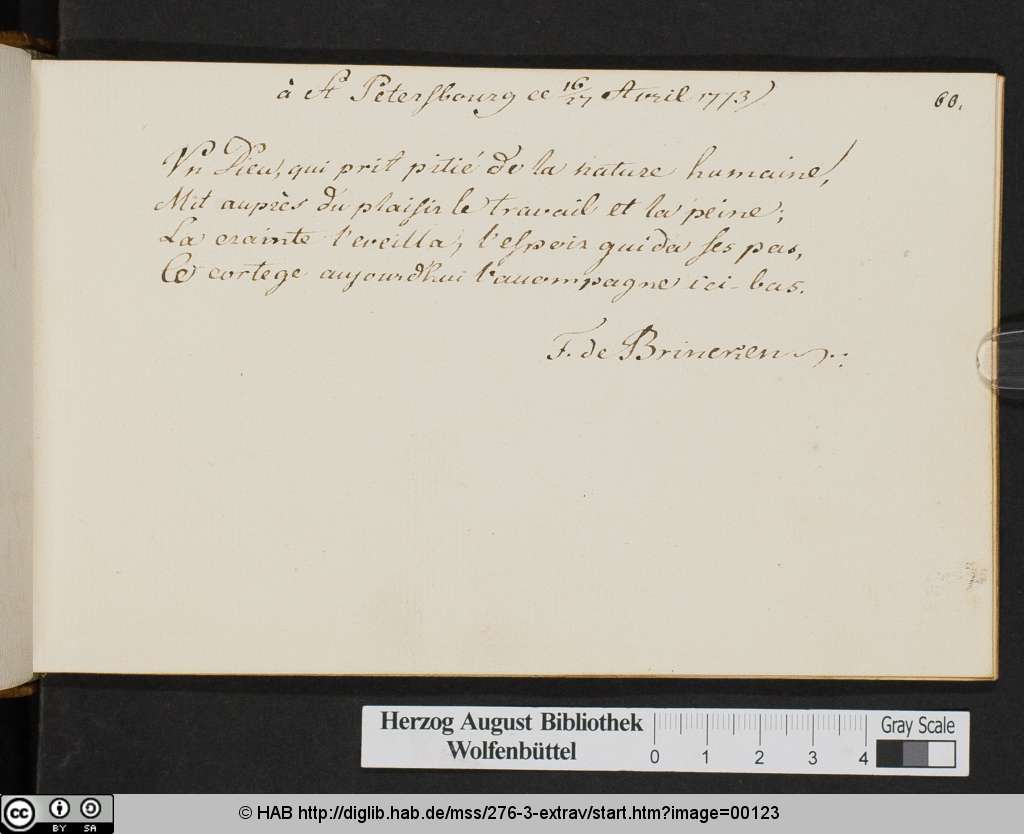 à St Petersbourg ce 16/27 Avril 1773
60.
Un Dieu, qui prit pitié de la nature humaine,
Mit auprès du plaisir le travail et la peine;
La crainte l'eveilla, l'espoir guida ses pas,
Ce cortege aujourd'hui l'accompagne ici-bas.
F. de Brincken
Herzog August Bibliothek
Wolfenbüttel
0 1 2 3 4
Gray Scale
cc BY SA
© HAB http://diglib.hab.de/mss/276-3-extrav/start.htm?image=00123